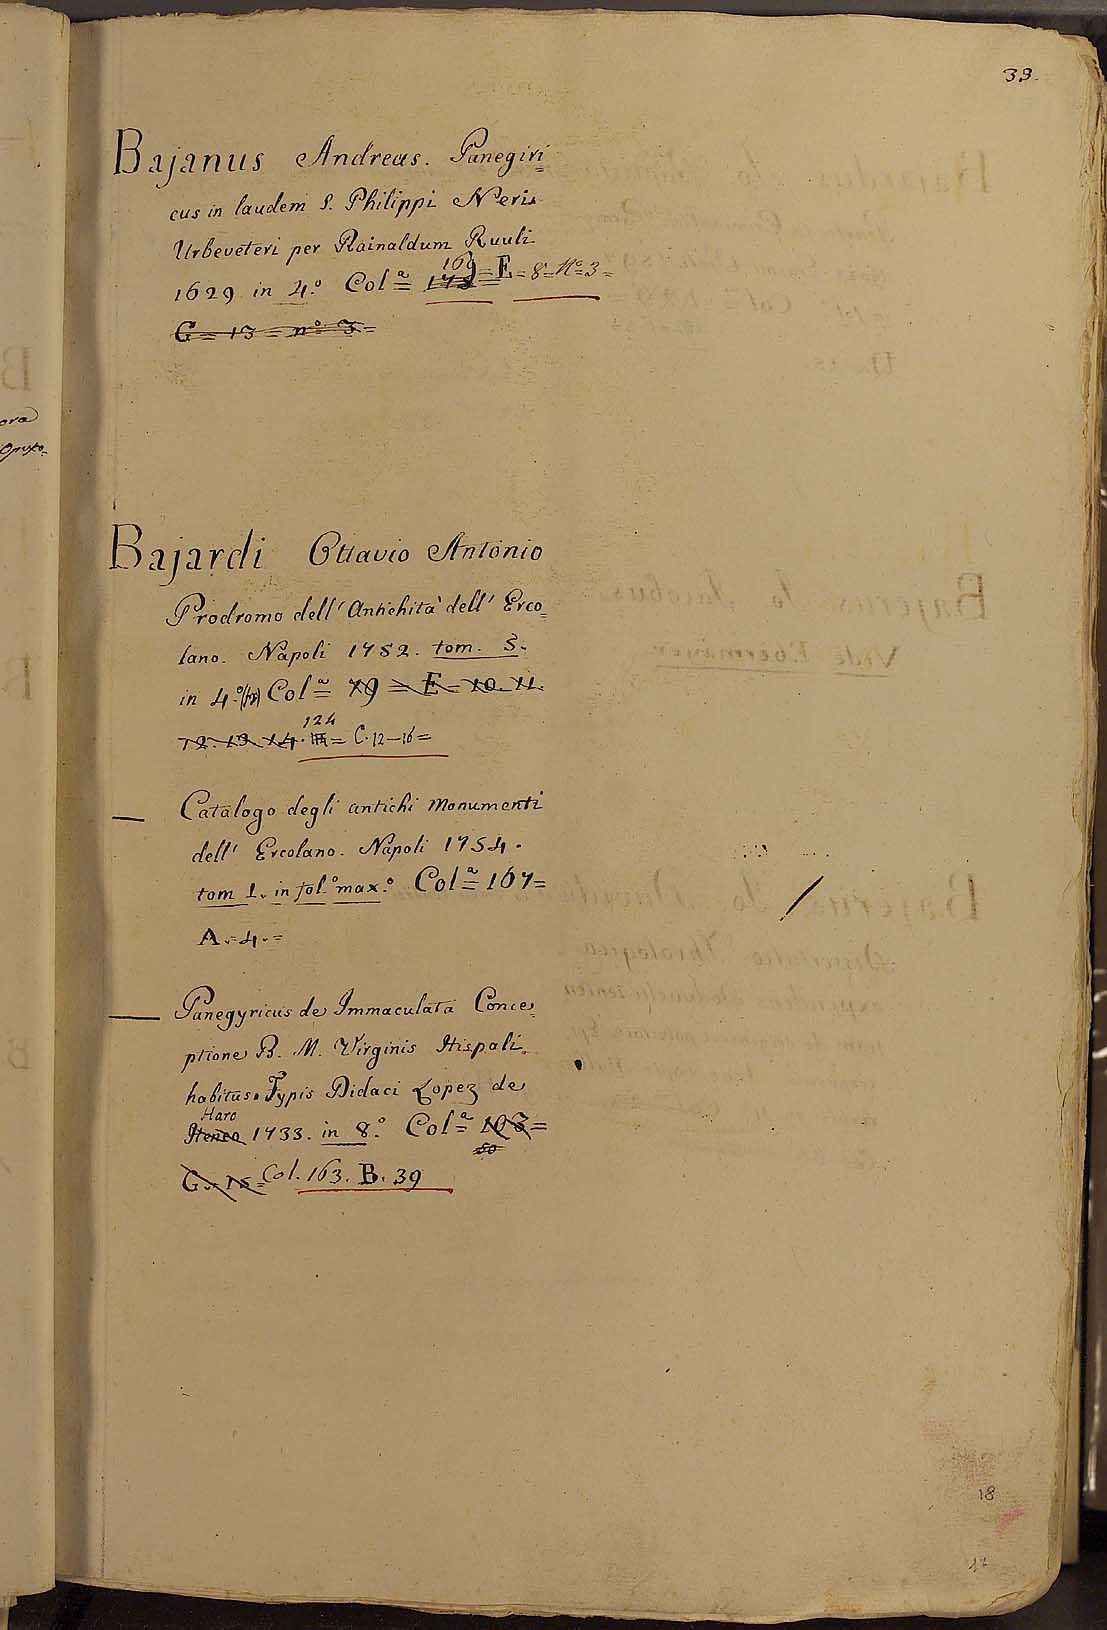 33.
Bajanus Andreas. Panegiri=
cus in laudem S. Philippi Neri.
Urbeveteri per Rainaldum Ruuli
169
1629 in 4.º Colª = 175 = E = 8 = Nº = 3 =
G = 13 = nº 3 =
Bajardi Ottavio Antonio
Prodromo dell' Antichità dell' Erco=
lano. Napoli 1752. tom. 5.
in 4.º Colª = 79 = E = 10. 11.
124
12. 13. 14. = C. 12 — 16 =
— Catalogo degli antichi Monumenti
dell' Ercolano. Napoli 1754.
tom 1. in fol.º max.º Colª = 167 =
A. = 4. =
— Panegyricus de Immaculata Conce=
ptione B. M. Virginis Hispali
habitus. Typis Didaci Lopez de
Haro
1733. in 8.º Colª = 103 =
50
G. = 15 = Col. 163. B. 39
18
ora